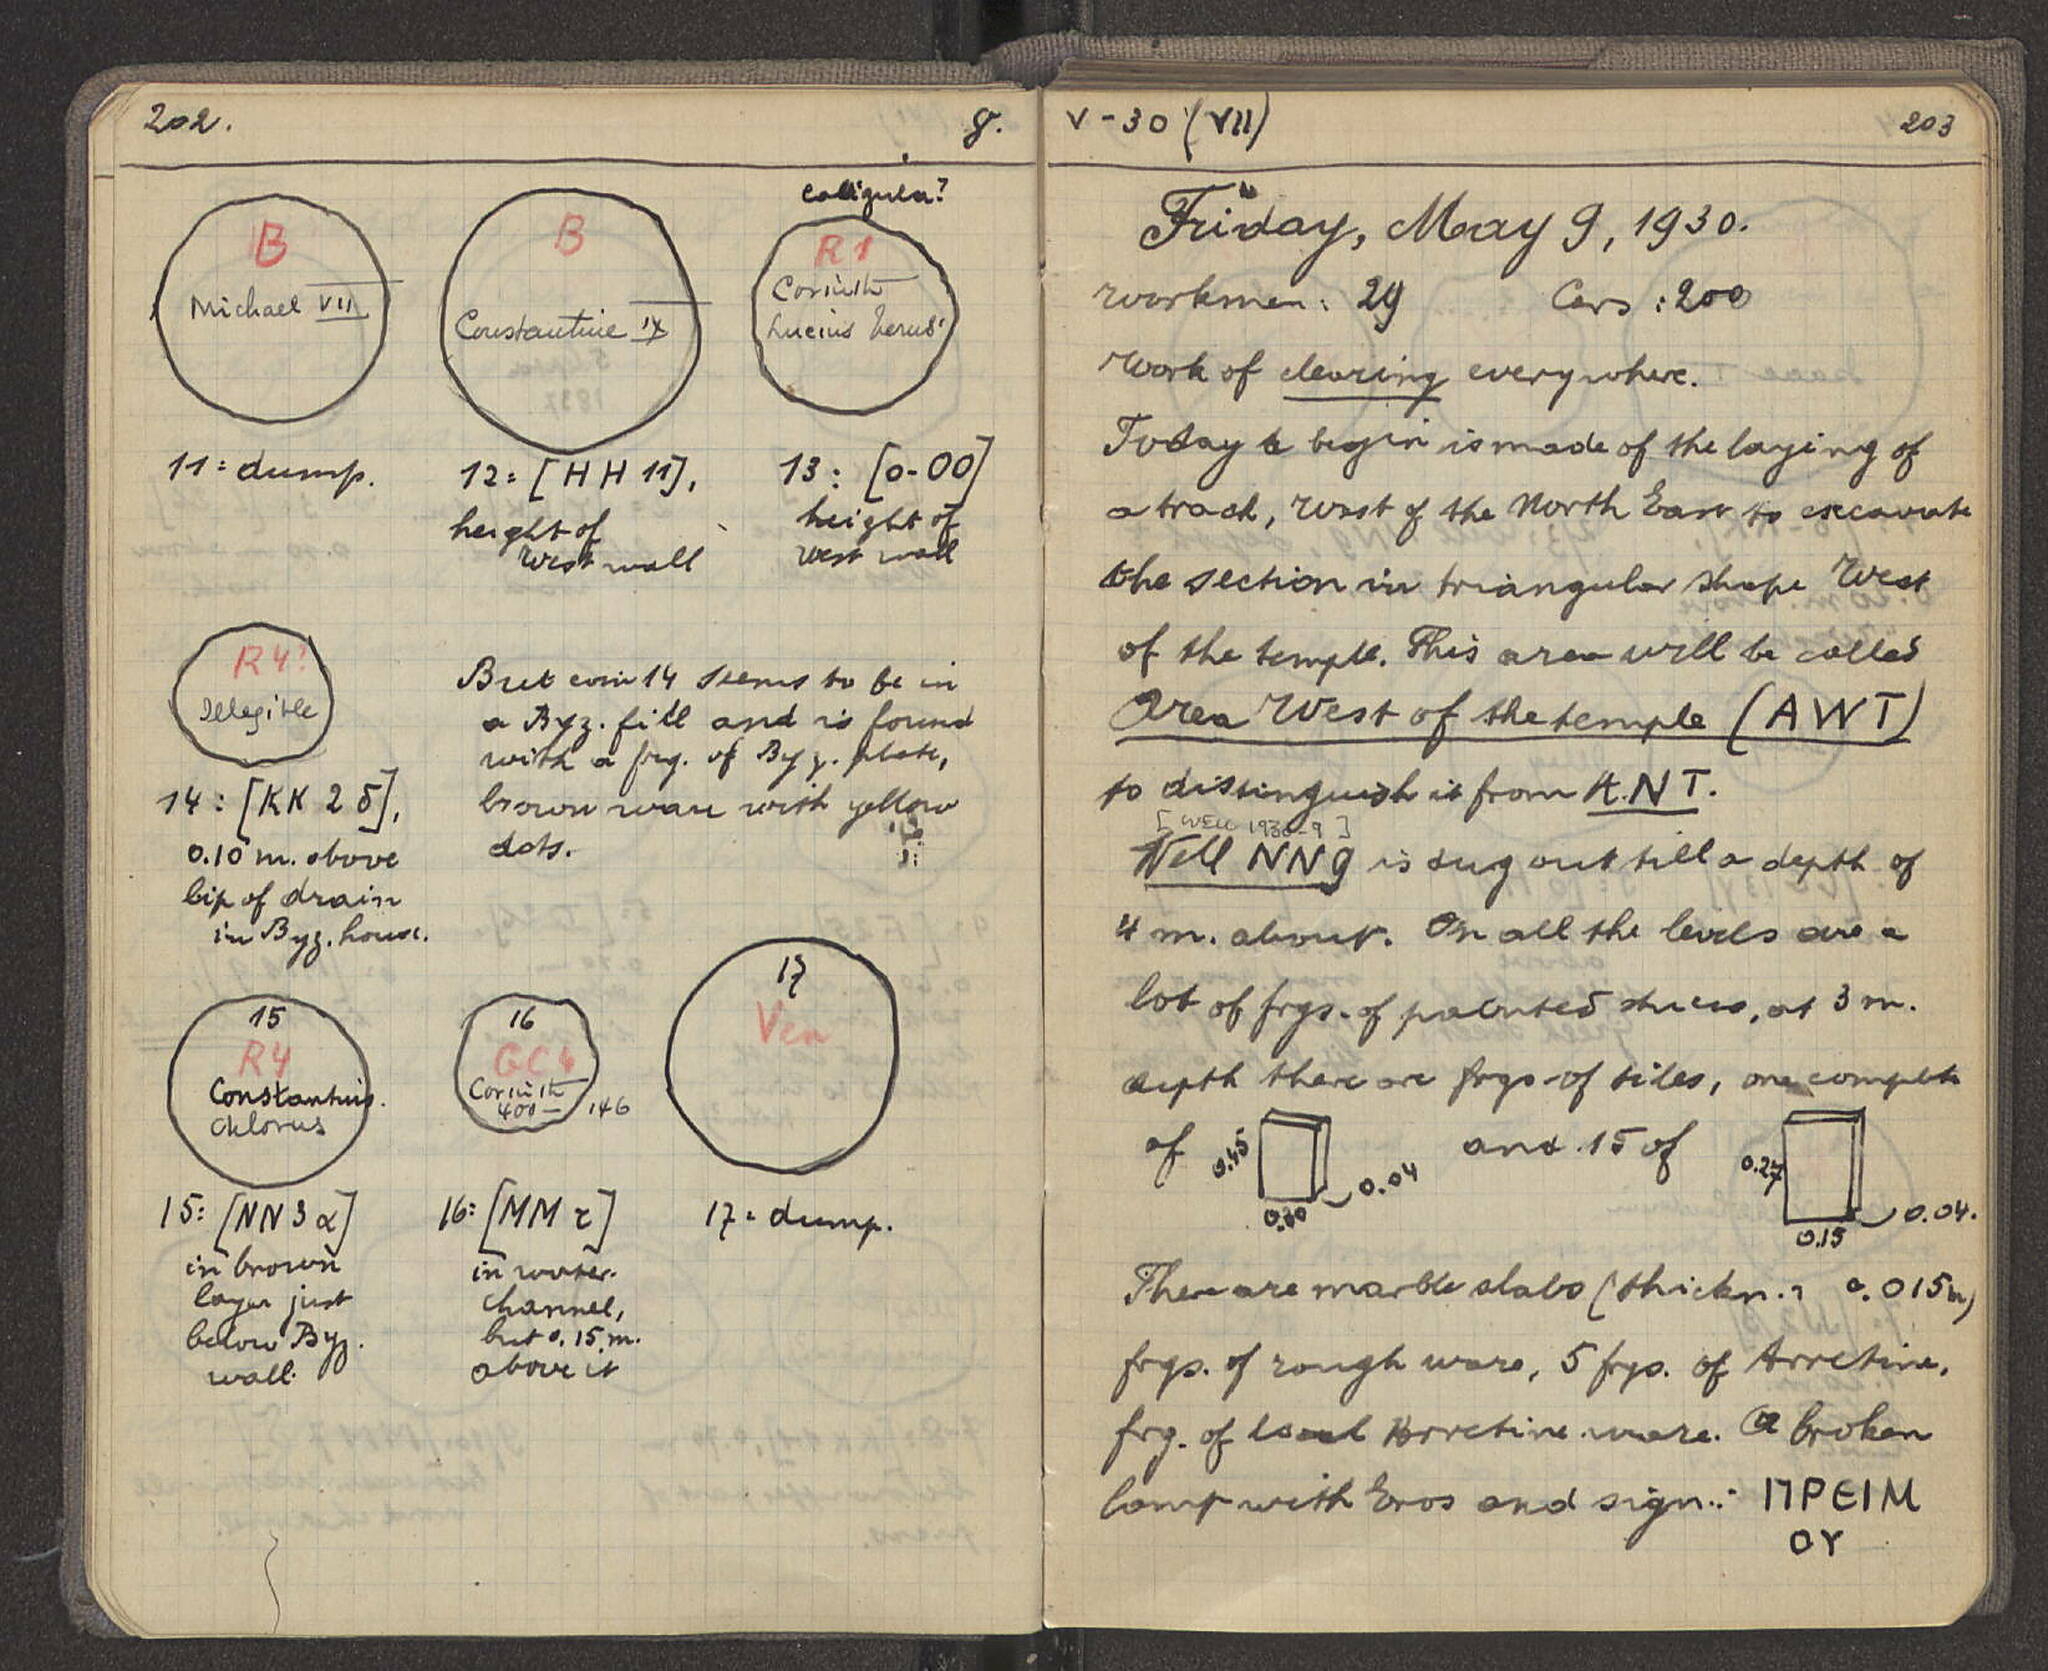 202.
8.
Calligula?
B
Michael VII
B
Constantine IX
R1
Corinth
Lucius Verus
11: dump.
12: [HH 11],
height of
West wall
13: [O-OO]
height of
West wall
R4?
Illegible
14: [KK 2 δ],
0.10 m. above
lip of drain
in Byz. house.
But coin 14 seems to be in
a Byz. fill and is found
with a frg. of Byz. plate,
brown ware with yellow
dots.
15
R4
Constantius
Chlorus
16
GC4
Corinth
400 – 146
17
Ven
15: [NN 3 α]
in brown
layer just
below Byz.
wall.
16: [MM τ]
in water-
channel,
but 0.15 m.
above it
17: dump.
V-30 (VII)
203
Friday, May 9, 1930.
Workmen: 29 Cars: 200
Work of clearing everywhere.
Today a begin is made of the laying of
a track, West of the North East to excavate
the section in triangular shape West
of the temple. This area will be called
Area West of the temple (AWT)
to distinguish it from A.NT.
[WELL 1930-9]
Well NN9 is dug out till a depth of
4 m. about. On all the levels are a
lot of frgs. of painted stucco, at 3 m.
depth there are frgs. of tiles, one complete
of 0.45 0.30 0.04 and 15 of 0.27 0.15 0.04.
There are marble slabs (thickn.: 0.015m)
frgs. of rough ware, 5 frgs. of Arretine,
frg. of local Arretine ware. A broken
lamp with Eros and sign.: ΠΡΕΙΜ
ΟΥ